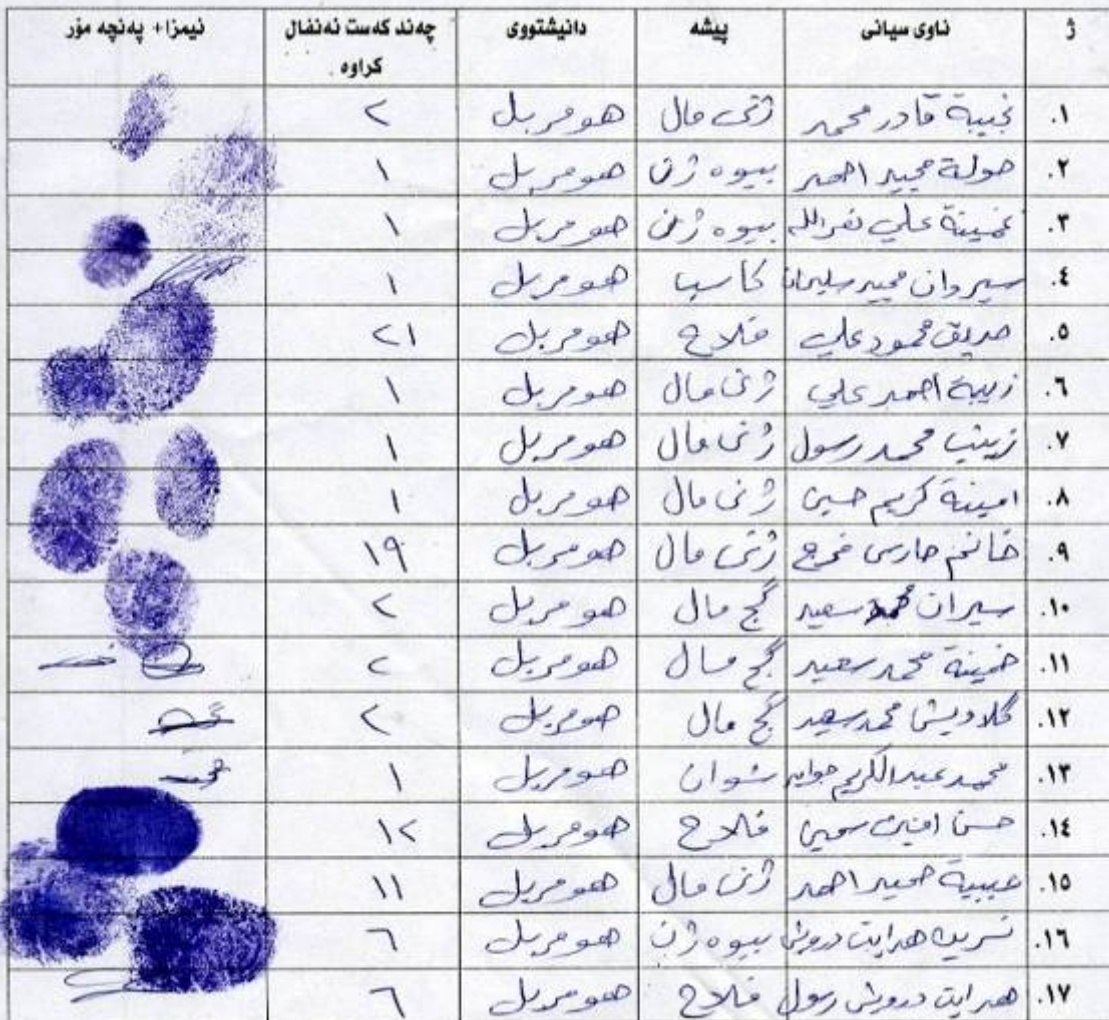 ژ ناوی سیانی پیشە دانیشتووی چەند کەست ئەنفال کراوە ئیمزا+ پەنجە مۆر
١. نجيبة قادر محمد ژنی مال هومربل ٢
٢. حولة مجيد احمد بیوە ژن هومربل ١
٣. علي نصرالله بیوە ژن هومربل ١
٤. سيروان مجيد سليمان کاسب هومربل ١
٥. صديق محمود علي فلاح هومربل ٢١
٦. زيبة احمد علي ژنی مال هومربل ١
٧. زينب محمد رسول ژنی مال هومربل ١
٨. امينة كريم حسين ژنی مال هومربل ١
٩. خانم حارس فرج ژنی مال هومربل ١٩
١٠. سيران محمد سعيد گچ مال هومربل ٢
١١. محمد سعيد گچ مال هومربل ٢
١٢. گلاويش محمد سعيد گچ مال هومربل ٢
١٣. محمد عبدالكريم شوان هومربل ١
١٤. حسن امين فلاح هومربل ١٢
١٥. حبيبة حميد احمد ژنی مال هومربل ١١
١٦. نسرين هدايت درويش بیوە ژن هومربل ٦
١٧. هدايت درويش رسول فلاح هومربل ٦